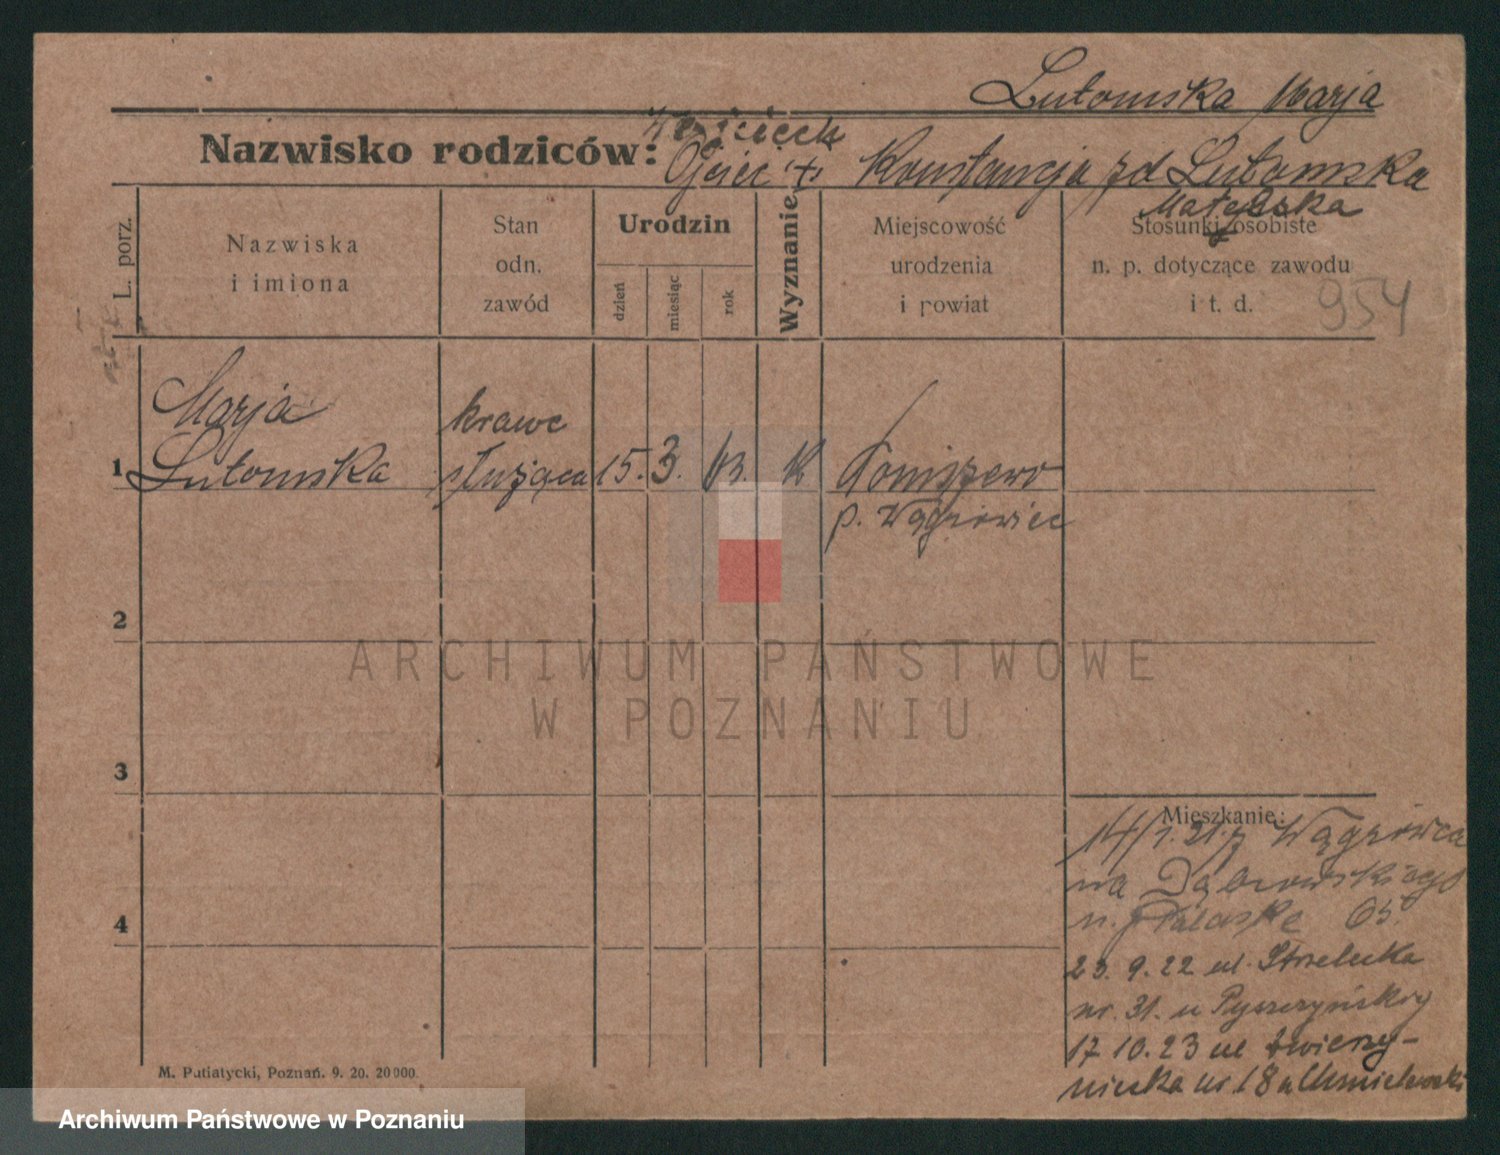 Lutomska Marja
Nazwisko rodziców: Wojciech
Ojciec + Konstancja zd Lutomska
Matejska
L. porz.
Nazwiska
i imiona
Stan
odn.
zawód
Urodzin
dzień
miesiąc
rok
Wyznanie
Miejscowość
urodzenia
i powiat
Stosunki osobiste
n. p. dotyczące zawodu
i t. d.
954
Marja krawc
1 Lutomska służąca 15. 3. K
p. Wągrowiec
2
ARCHIWUM PAŃSTWOWE
W POZNANIU
3
Mieszkanie:
14/1. 21. z Wągrówca
na Dąbrowskiego
65.
4
23. 9. 22 ul. Strzelecka
nr. 31. u Pyszczyńskiej
17 10. 23 ul Zwierzy-
niecka nr 18 u Chmielewski
M. Putiatycki, Poznań. 9. 20. 20000.
Archiwum Państwowe w Poznaniu